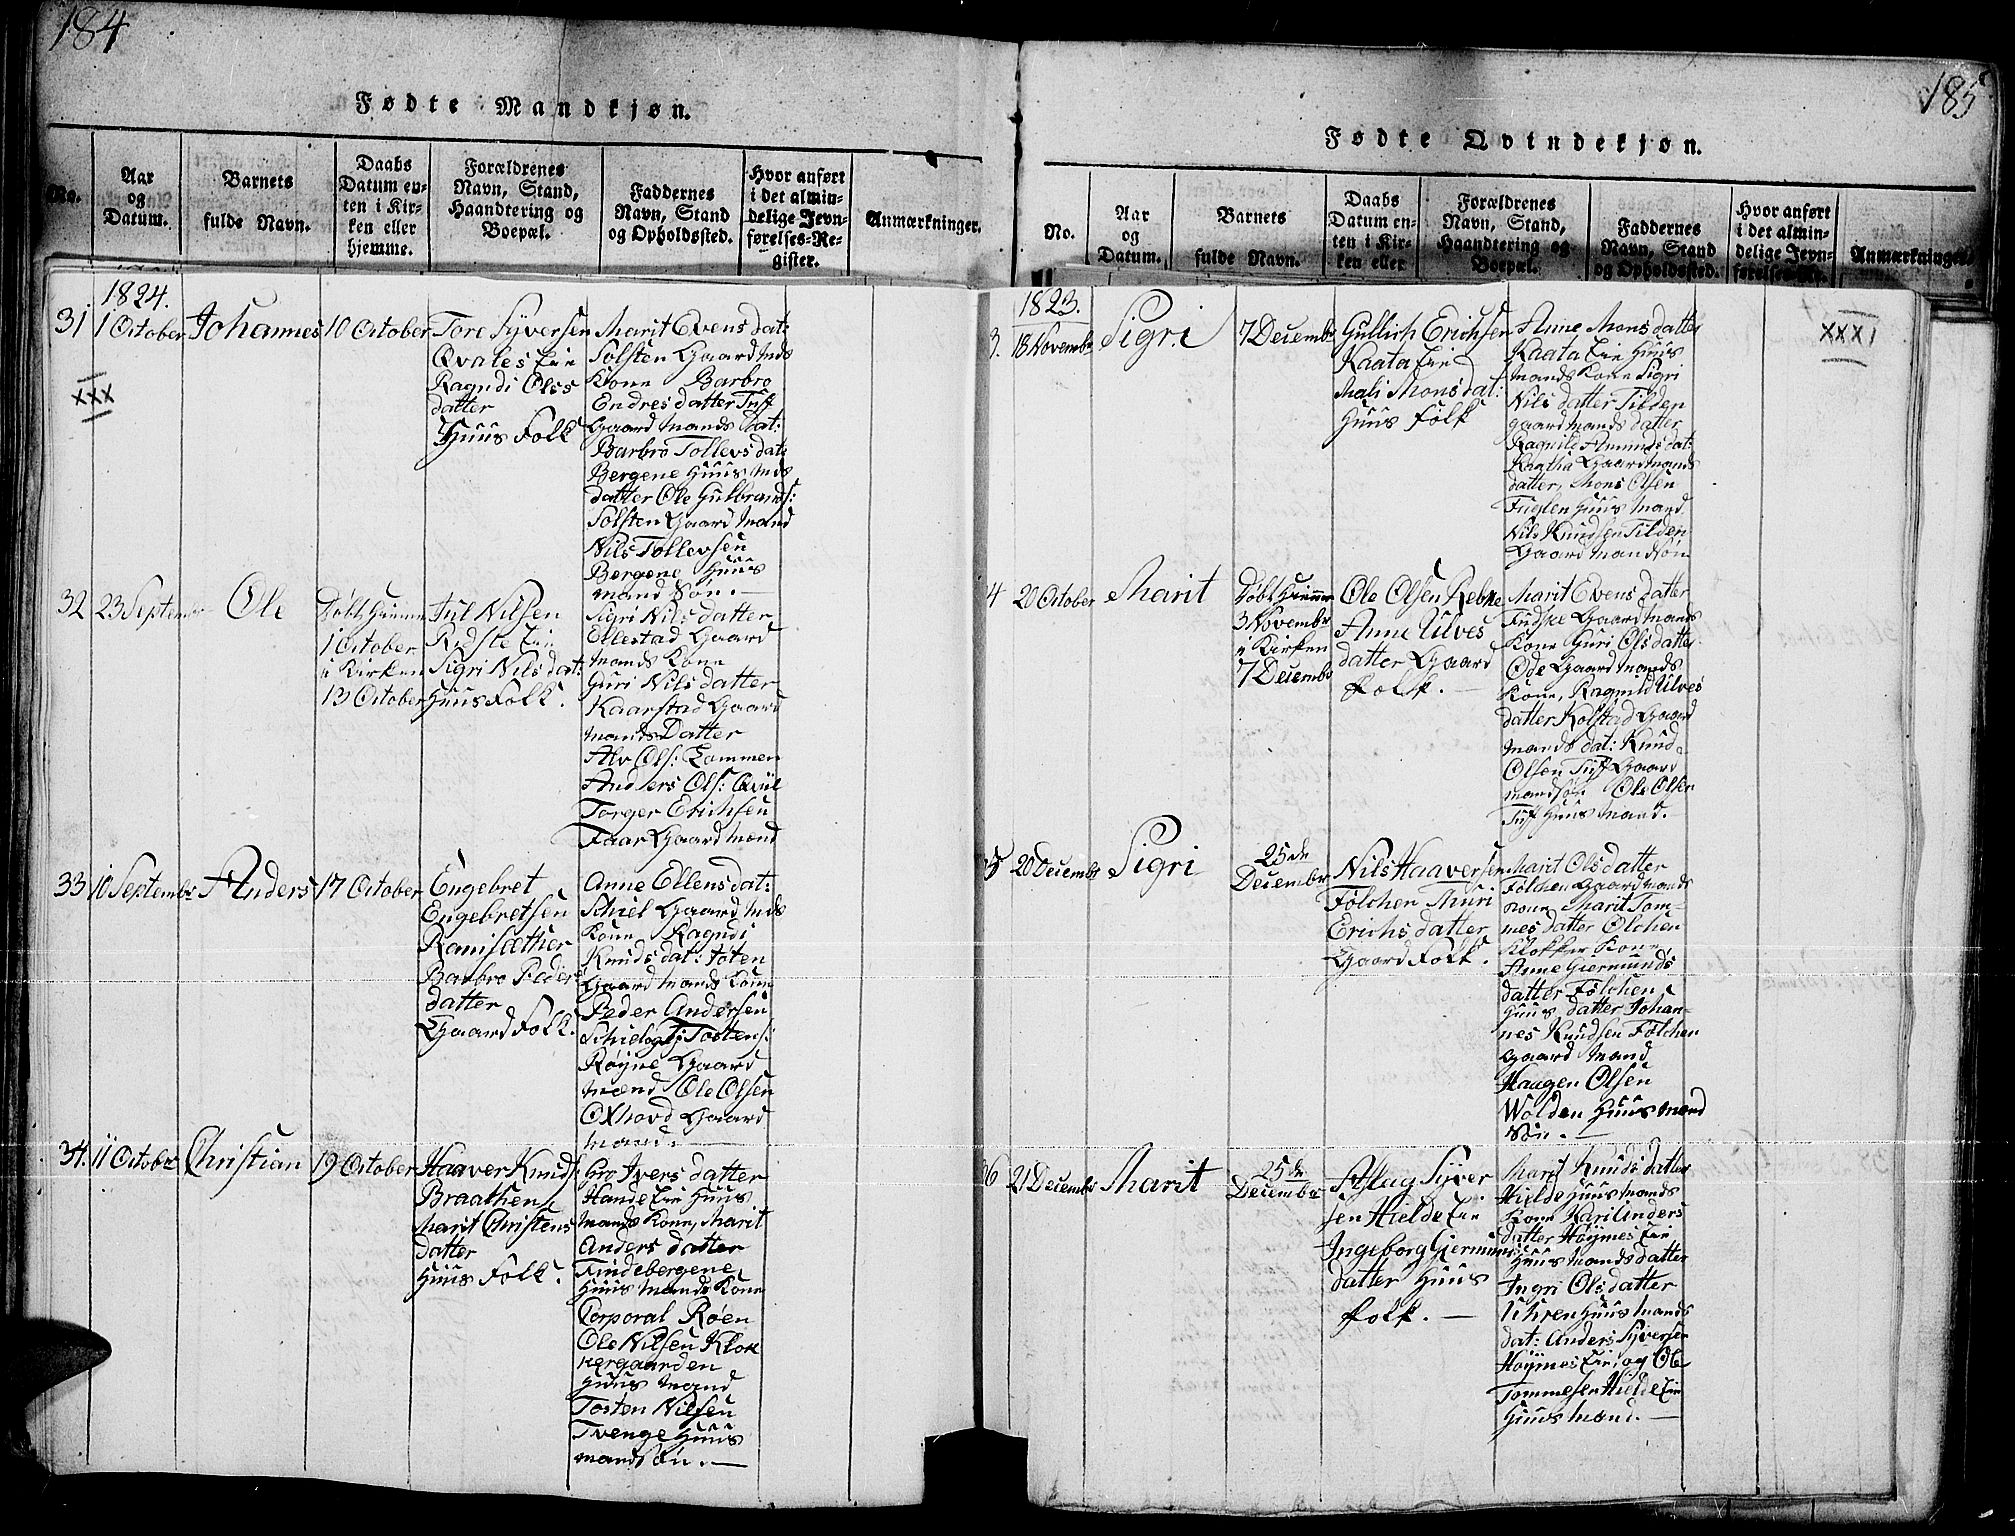 184
Fødte Mandkjøn.
No.
Aar
og
Datum.
Barnets
fulde Navn.
Daabs
Datum en-
ten i Kir-
ken eller
hjemme.
Forældrenes
Navn, Stand,
Haandtering og
Boepæl.
Faddernes
Navn, Stand
og Opholdssted.
Hvor anført
i det almin-
delige Jevn-
førelses-Re-
gister.
Anmærkninger.
1824.
31
1 October
Johannes
10 October
Tore Syversen
Qvales Eie
Ragndi Ols
datter
Huus Folk
Marit Evens dat:
Solsten Gaard Mds
Kone Barbro
Endres datter Tuff
Gaard Mands Dat:
Barbro Tollevs dat:
Bergene Huus Mds
datter Ole Gulbrands:
Solsten Gaard Mand
Nils Tollevsen
Bergene Huus
mand Søn. —
XXX
32
23 Septem
Ole
Døbt Hiemme
1 October
i Kirken
13 October
Jul Nilsen
Redste Eie
Sigri Nils dat:
Huus Folk.
Sigri Nils datter
Ellestad Gaard
Mands Kone
Guri Nils datter
Kaarstad Gaard
Mands Datter
Alv Ols: Lommen
Anders Ols: Qviil
Torger Erichsen
Faar Gaard Mænd
33
10 Septembr
Anders
17 October
Engebret
Engebretsen
Ramisæther
Barbro Peders
datter
Gaard Folk.
Anne Ellens dat:
Schiel Gaard Mds
Kone Ragndi
Knuds dat: Joten
Gaard Mands Kone
Peder Andersen
Schiel og Tj Tostens:
Røyne Gaard
Mænd Ole Olsen
Oxhovd Gaard
Mand. —
34.
11 October
Christian
19 October
Haaver Knuds:
Braathen
Marit Christens
datter
Huus Folk.
Gro Ivers datter
Hande Eie Huus
Mands Kone, Marit
Anders datter
Findebergene
Huus Mands Kone
Corporal Røen
Ole Nilsen Klok
kergaarden
Huus Mand
Tosten Nilsen
Tvenge Huus
mand Søn. —
185
Fødte Qvindekjøn.
No.
Aar
og
Datum.
Barnets
fulde Navn.
Daabs
Datum en-
ten i Kir-
ken eller
Forældrenes
Navn, Stand,
Haandtering og
Boepæl.
Faddernes
Navn, Stand
og Opholdssted.
Hvor anført
i det almin-
delige Jevn-
førelses-Re-
Anmærkninger.
1823.
3.
18 Novembr
Sigri
7 Decembr
Gullich Erichsen
Kaata Eie
Mali Mons dat:
Huus Folk
Anne Mons datter
Kaata Eie Huus
Mands Kone Sigri
Nils datter Tilden
gaard Mands datter
Ragnile Amunds dat:
Kaatha Gaard Mands
datter, Mons Olsen
Fuglen Huus Mand.
Nils Knudsen Tilden
Gaard Mandsøn
XXXI
4
20 October
Marit
Døbt Hiemme
3 Novembr
i Kirken
7 Decembr
Ole Olsen Rebne
Anne Ulves
datter Gaard
Folk. —
Marit Evens datter
Fudske Gaard Mands
Kone Guri Ols datter
Øde Gaard Mands
Kone, Ragnild Ulves
datter Kolstad Gaard
Mands dat: Knud
Olsen Tuff Gaard
mandsøn Ole Olsen
Tuff Huus Mand.
5
20 Decembr
Sigri
25de
Decembr
Nils Haaversen
Følchen Muri
Erichs datter
Gaard Folk.
Marit Ols datter
Følchen Gaard Mands
Kone Marit Tom-
mes datter Ølchen
Klokker Kone,
Anne Giermunds
datter Følchen
Huus datter Johan-
nes Knudsen Følchen
Gaard Mand
Haagen Olsen
Wolden Huus Mand
Søn. —
6
21 Decembr
Marit
25de
Decembr
Aslag Syver
sen Hielde Eie
Ingeborg Giermunds
datter Huus
Folk. —
Marit Knuds datter
Hielde Huus Mands
Kone Kari Anders
datter Høymes Eie
Huus Mands datter
Ingri Ols datter
Uhren Huus Mands
dat: Anders Syversen
Høymes Eie, og Ole
Tommesen Hielde Eie
Huus Mand. —